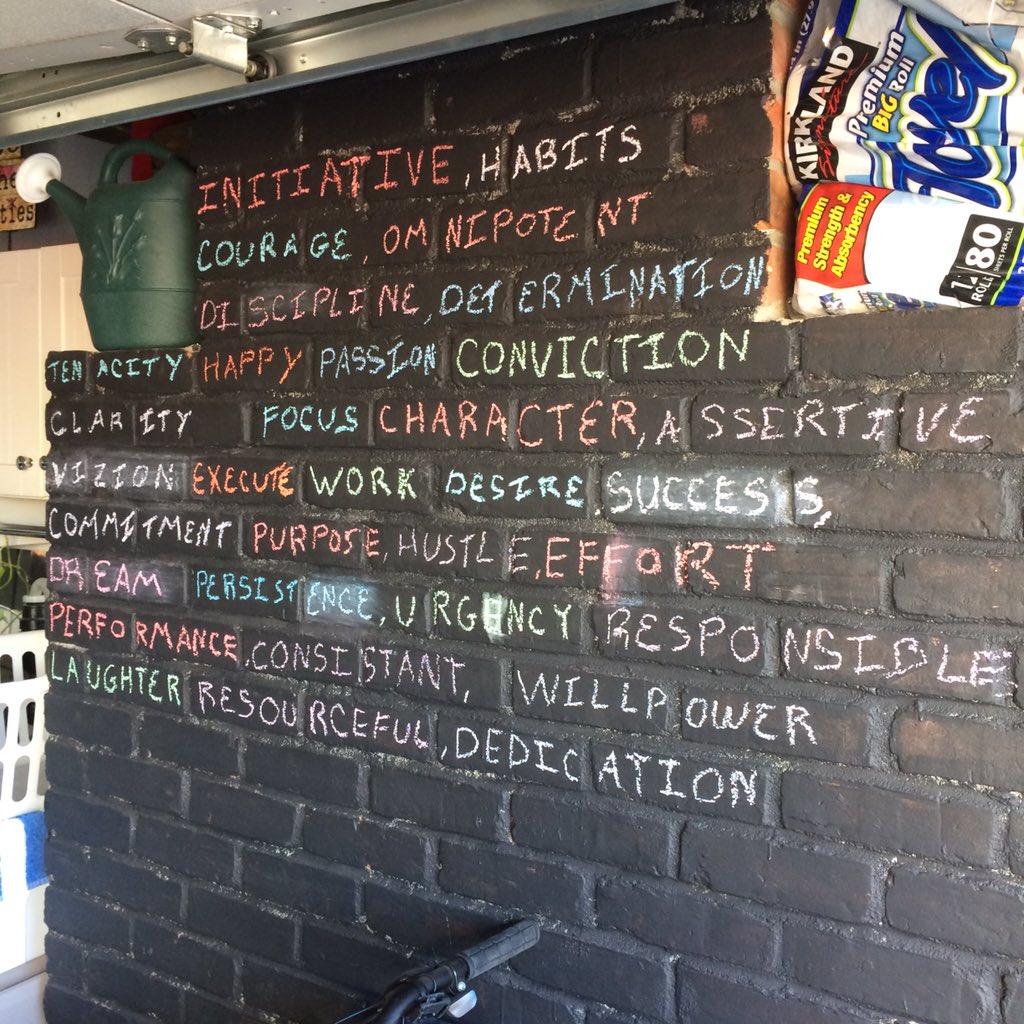 INITIATIVE, HABITS
COURAGE, OMNIPOTENT
DISCIPLINE, DETERMINATION
TENACITY HAPPY PASSION CONVICTION
CLARITY FOCUS CHARACTER, ASSERTIVE
VIZION EXECUTE WORK DESIRE SUCCESS,
COMMITMENT PURPOSE, HUSTLE, EFFORT
DREAM PERSISTENCE, URGENCY RESPONSIBLE
PERFORMANCE, CONSISTANT, WILLPOWER
LAUGHTER RESOURCEFUL, DEDICATION
KIRKLAND
Signature
Premium
BIG Roll
Towel
Premium
Strength &
Absorbency
80
SHEETS PER ROLL
1
ROLL